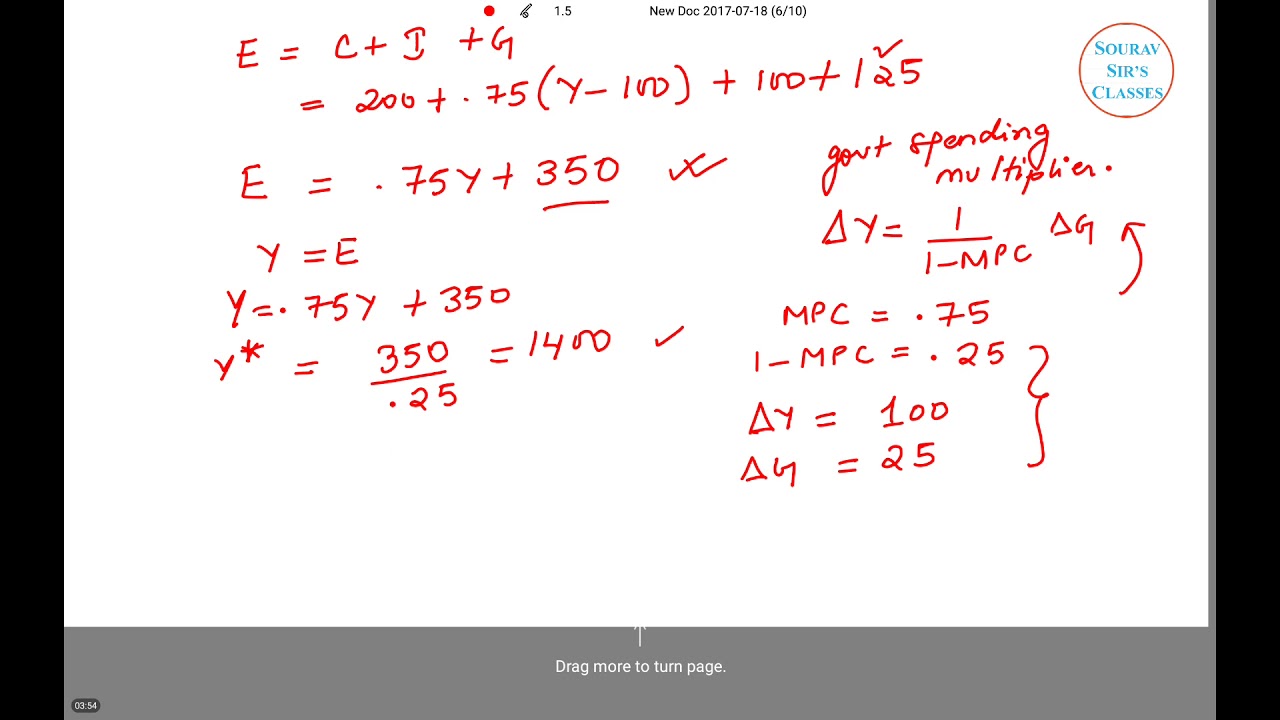 1.5 New Doc 2017-07-18 (6/10)
SOURAV
SIR'S
CLASSES
E = C + I + G
= 200 + .75(Y - 100) + 100 + 125
E = .75Y + 350
Y = E
Y = .75Y + 350
Y* = 350/.25 = 1400
govt spending
multiplier.
ΔY = 1/1-MPC ΔG
MPC = .75
1-MPC = .25
ΔY = 100
ΔG = 25
Drag more to turn page.
03:54